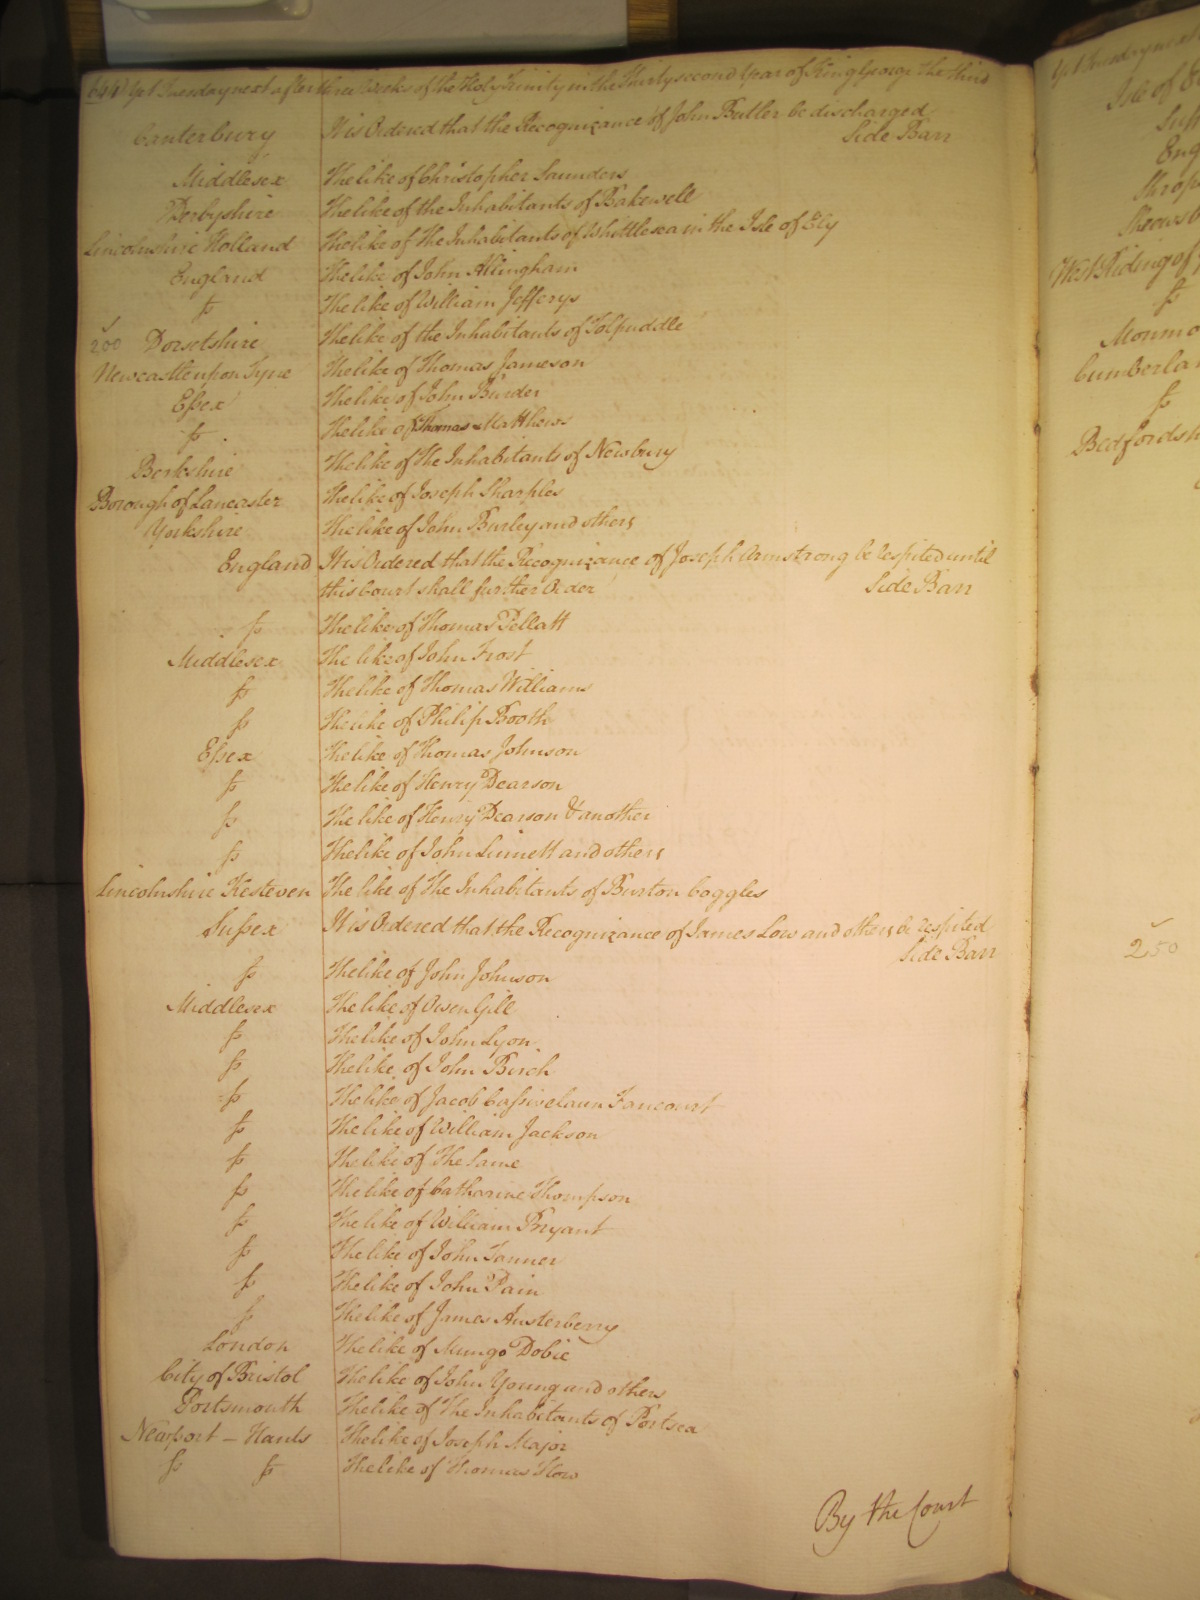 (44) Yet Tuesday next after three Weeks of the Holy Trinity in the Thirty second Year of King George the third
Canterbury It is Ordered that the Recognizance of John Butler be discharged
Side Barr
Middlesex The like of Christopher Saunders
Derbyshire The like of the Inhabitants of Bakewell
Lincolnshire Holland The like of The Inhabitants of Whittlesea in the Isle of Ely
England The like of John Allingham
fs The like of William Jefferys
200 Dorsetshire The like of the Inhabitants of Tolpuddle
Newcastle upon Tyne The like of Thomas Jameson
Eſsex The like of John Burder
fs The like of Thomas Matthews
Berkshire The like of The Inhabitants of Newbury
Borough of Lancaster The like of Joseph Sharples
Yorkshire The like of John Burley and others
England It is Ordered that the Recognizance of Joseph Armstrong be respited until
this Court shall further Order Side Barr
fs The like of Thomas Pellatt
Middlesex The like of John Frost
fs The like of Thomas Williams
fs The like of Philip Booth
Eſsex The like of Thomas Johnson
fs The like of Henry Dearson
fs The like of Henry Dearson & another
fs The like of John Linnett and others
Lincolnshire Kesteven The like of The Inhabitants of Burton Coggles
Suſsex It is Ordered that the Recognizance of James Low and others be respited
Side Barr
fs The like of John Johnson
Middlesex The like of Owen Gill
fs The like of John Lyon
fs The like of John Birch
fs The like of Jacob Caſsivelaun Fancourt
fs The like of William Jackson
fs The like of The Same
fs The like of Catharine Thompson
fs The like of William Bryant
fs The like of John Tanner
fs The like of John Pain
fs The like of James Austerberry
London The like of Mungo Dobie
City of Bristol The like of John Young and others
Portsmouth The like of The Inhabitants of Portsea
Newport – Hants The like of Joseph Major
fs fs The like of Thomas How
By the Court
Isle of
West Riding of
fs
fs
250